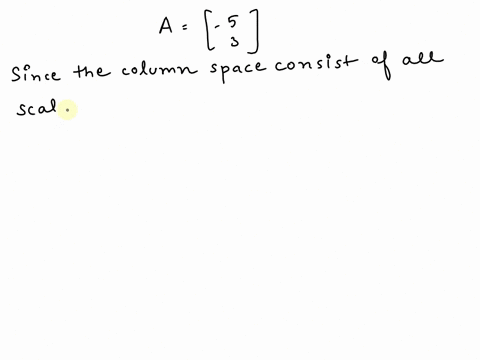 A = [-5
3]
Since the column space consist of all
scal